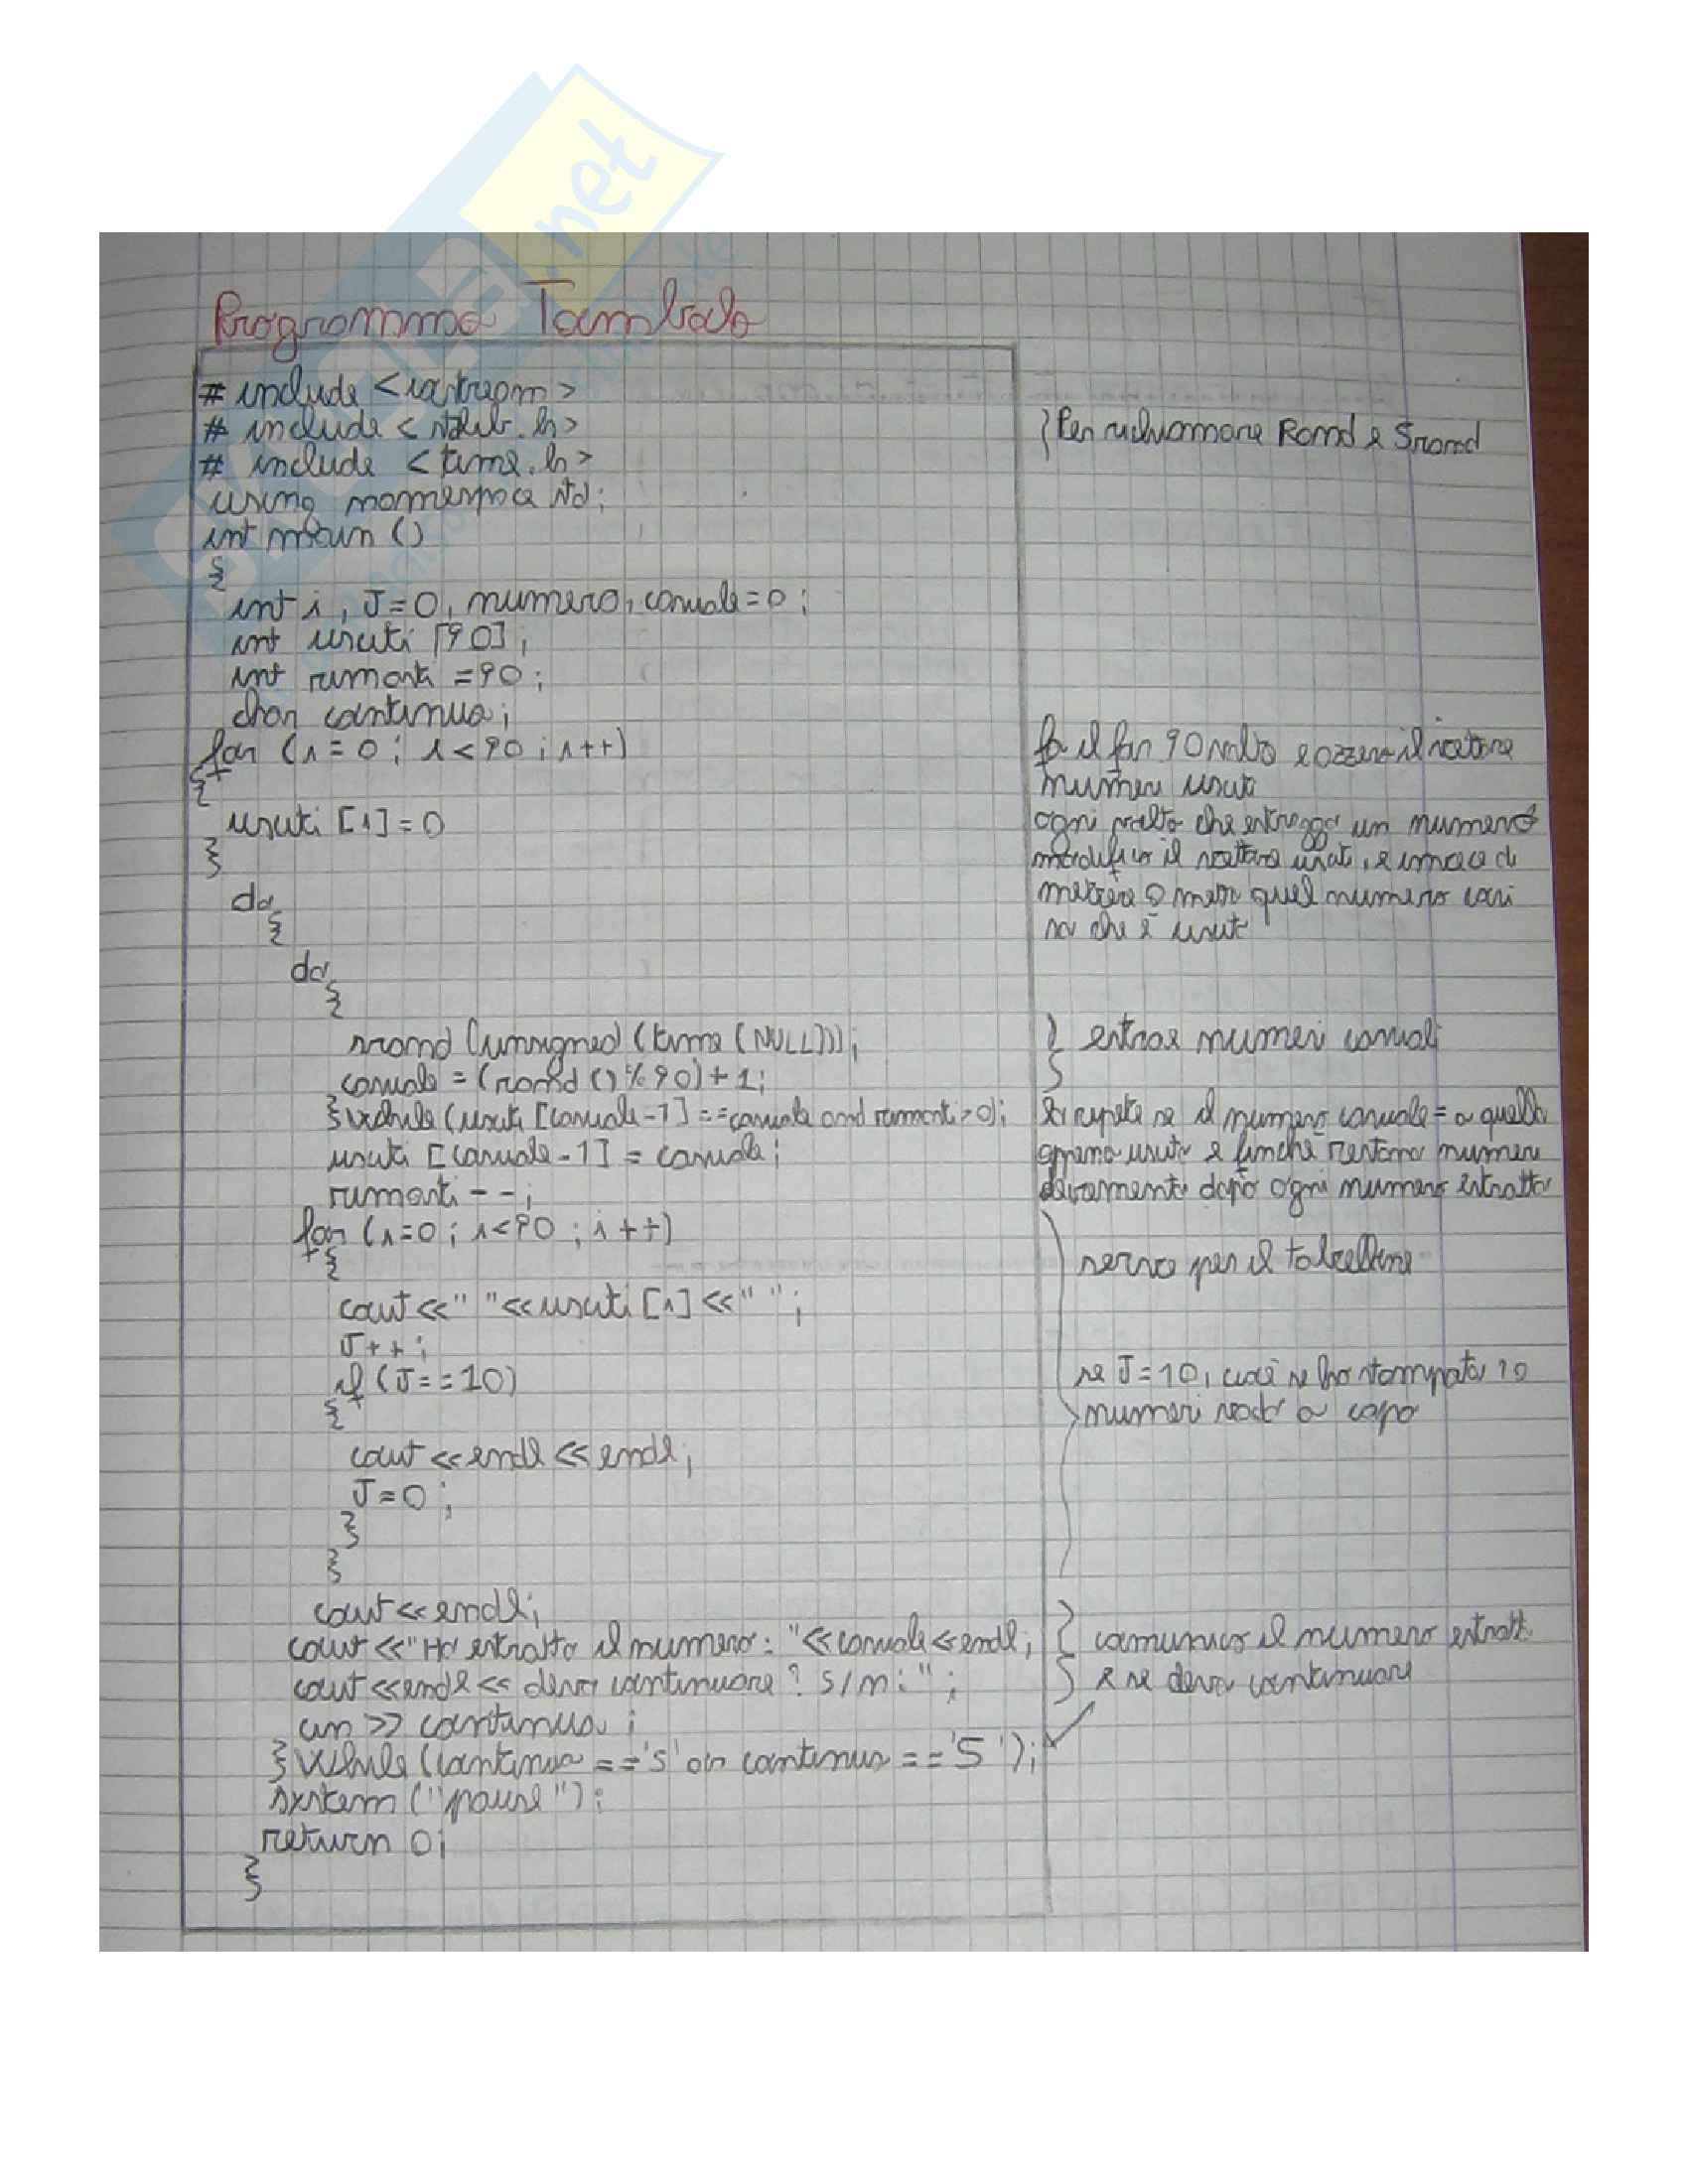 Programma Tombola
#include <iostream>
#include <stdlib.h> } Per richiamare Rand e Srand
#include <time.h>
using namespace std;
int main ()
{
int i, J=0, numero, casuale=0;
int usciti [90];
int rimasti =90;
char continua;
for (i=0; i<90; i++) fa il for 90 volte e azzera il vettore
{ numeri usciti
usciti [i]=0 ogni volta che estraggo un numero
} modifico il vettore usciti, e invece di
do mettere 0 metti quel numero così
{ so che è uscito
do
{
srand (unsigned) (time (NULL))); } estrae numeri casuali
casuale = (rand () % 90) + 1;
} while (usciti [casuale-1] ==casuale and rimasti >0); si ripete se il numero casuale = a quello
usciti [casuale-1] = casuale; appena uscito e finchè restano numeri
rimasti --; decremento dopo ogni numero estratto
for (i=0; i<90; i++)
{ serve per il tabellone
cout <<" "<<usciti [i] <<" ";
J++;
if (J==10) se J=10, cioè se ho stampato 10
{ numeri vado a capo
cout <<endl <<endl;
J=0;
}
}
cout <<endl;
cout <<"Ho estratto il numero: "<<casuale<<endl; } comunico il numero estratto
cout <<endl<< devo continuare? s/n: "; e se devo continuare
cin >> continua;
} while (continua =='s' or continua =='S');
system ("pause");
return 0;
}